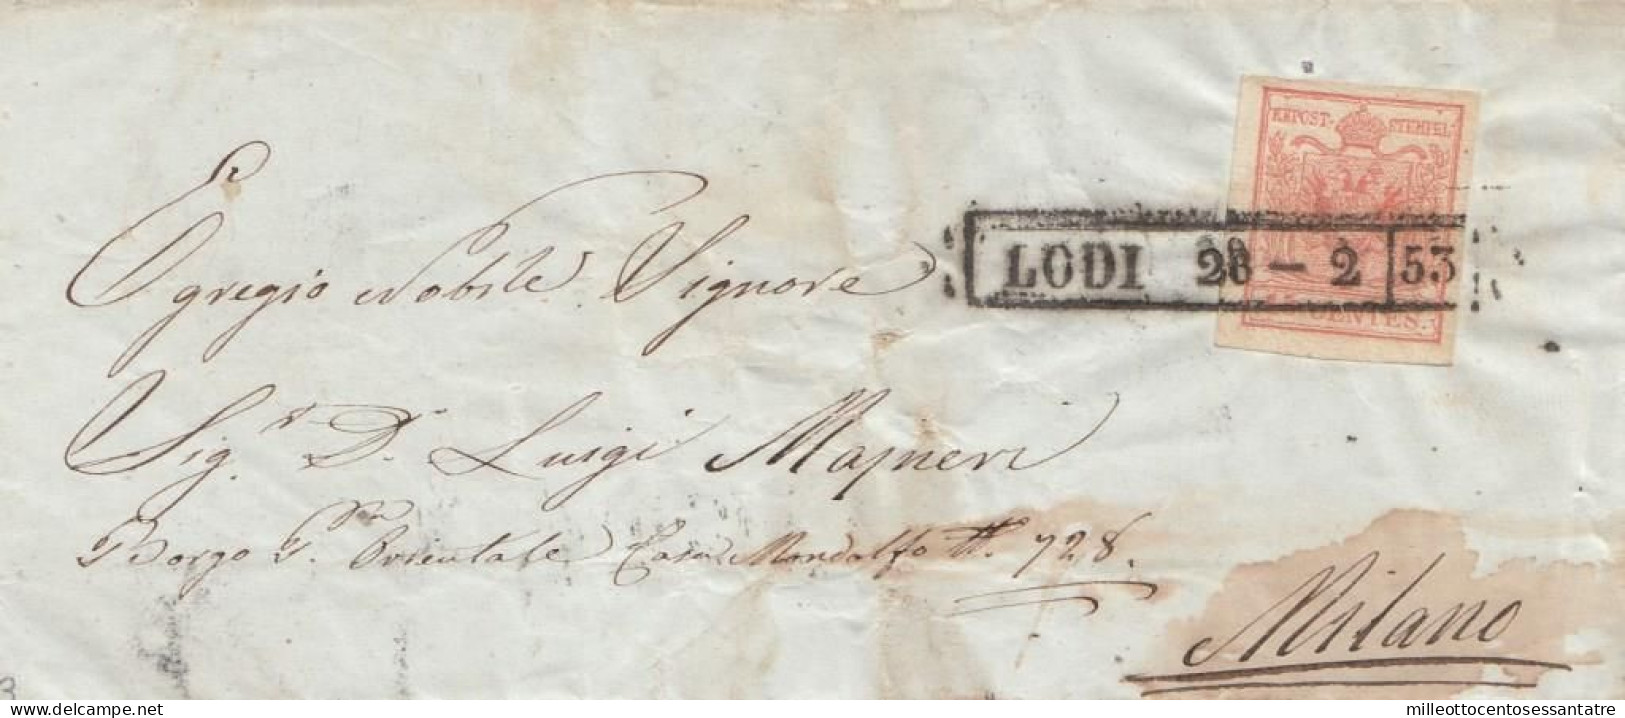 KKPOST-STEMPEL
LODI 28-2 53
15 CENTES.
Egregio Nobile Signore
Sig.r D.r Luigi Majneri
Borgo P.ta Orientale Casa Mondolfo N. 728.
Milano
delcampe.net
milleottocentosessantatre